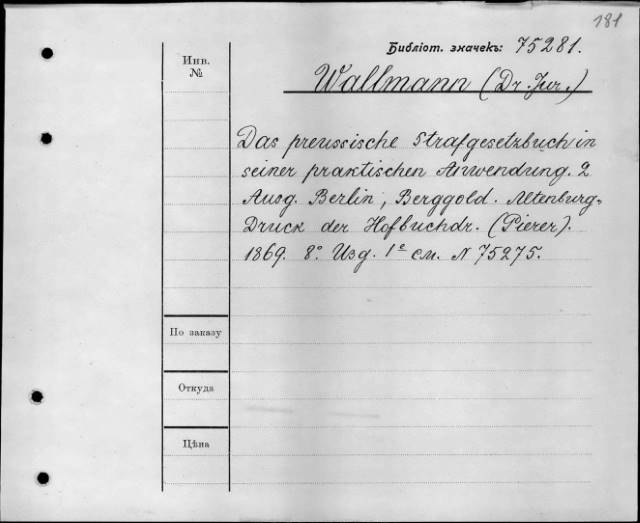 181
Библiот. значекъ: 75281.
Инв.
№
Wallmann (Dr. Jur.)
Das preussische Strafgesetzbuch in
seiner praktischen Anwendung. 2
Ausg. Berlin, Berggold. Altenburg.
Druck der Hofbuchdr. (Pierer).
1869. 8º. Изд. 1е см. N 75275.
По заказу
Откуда
Цѣна